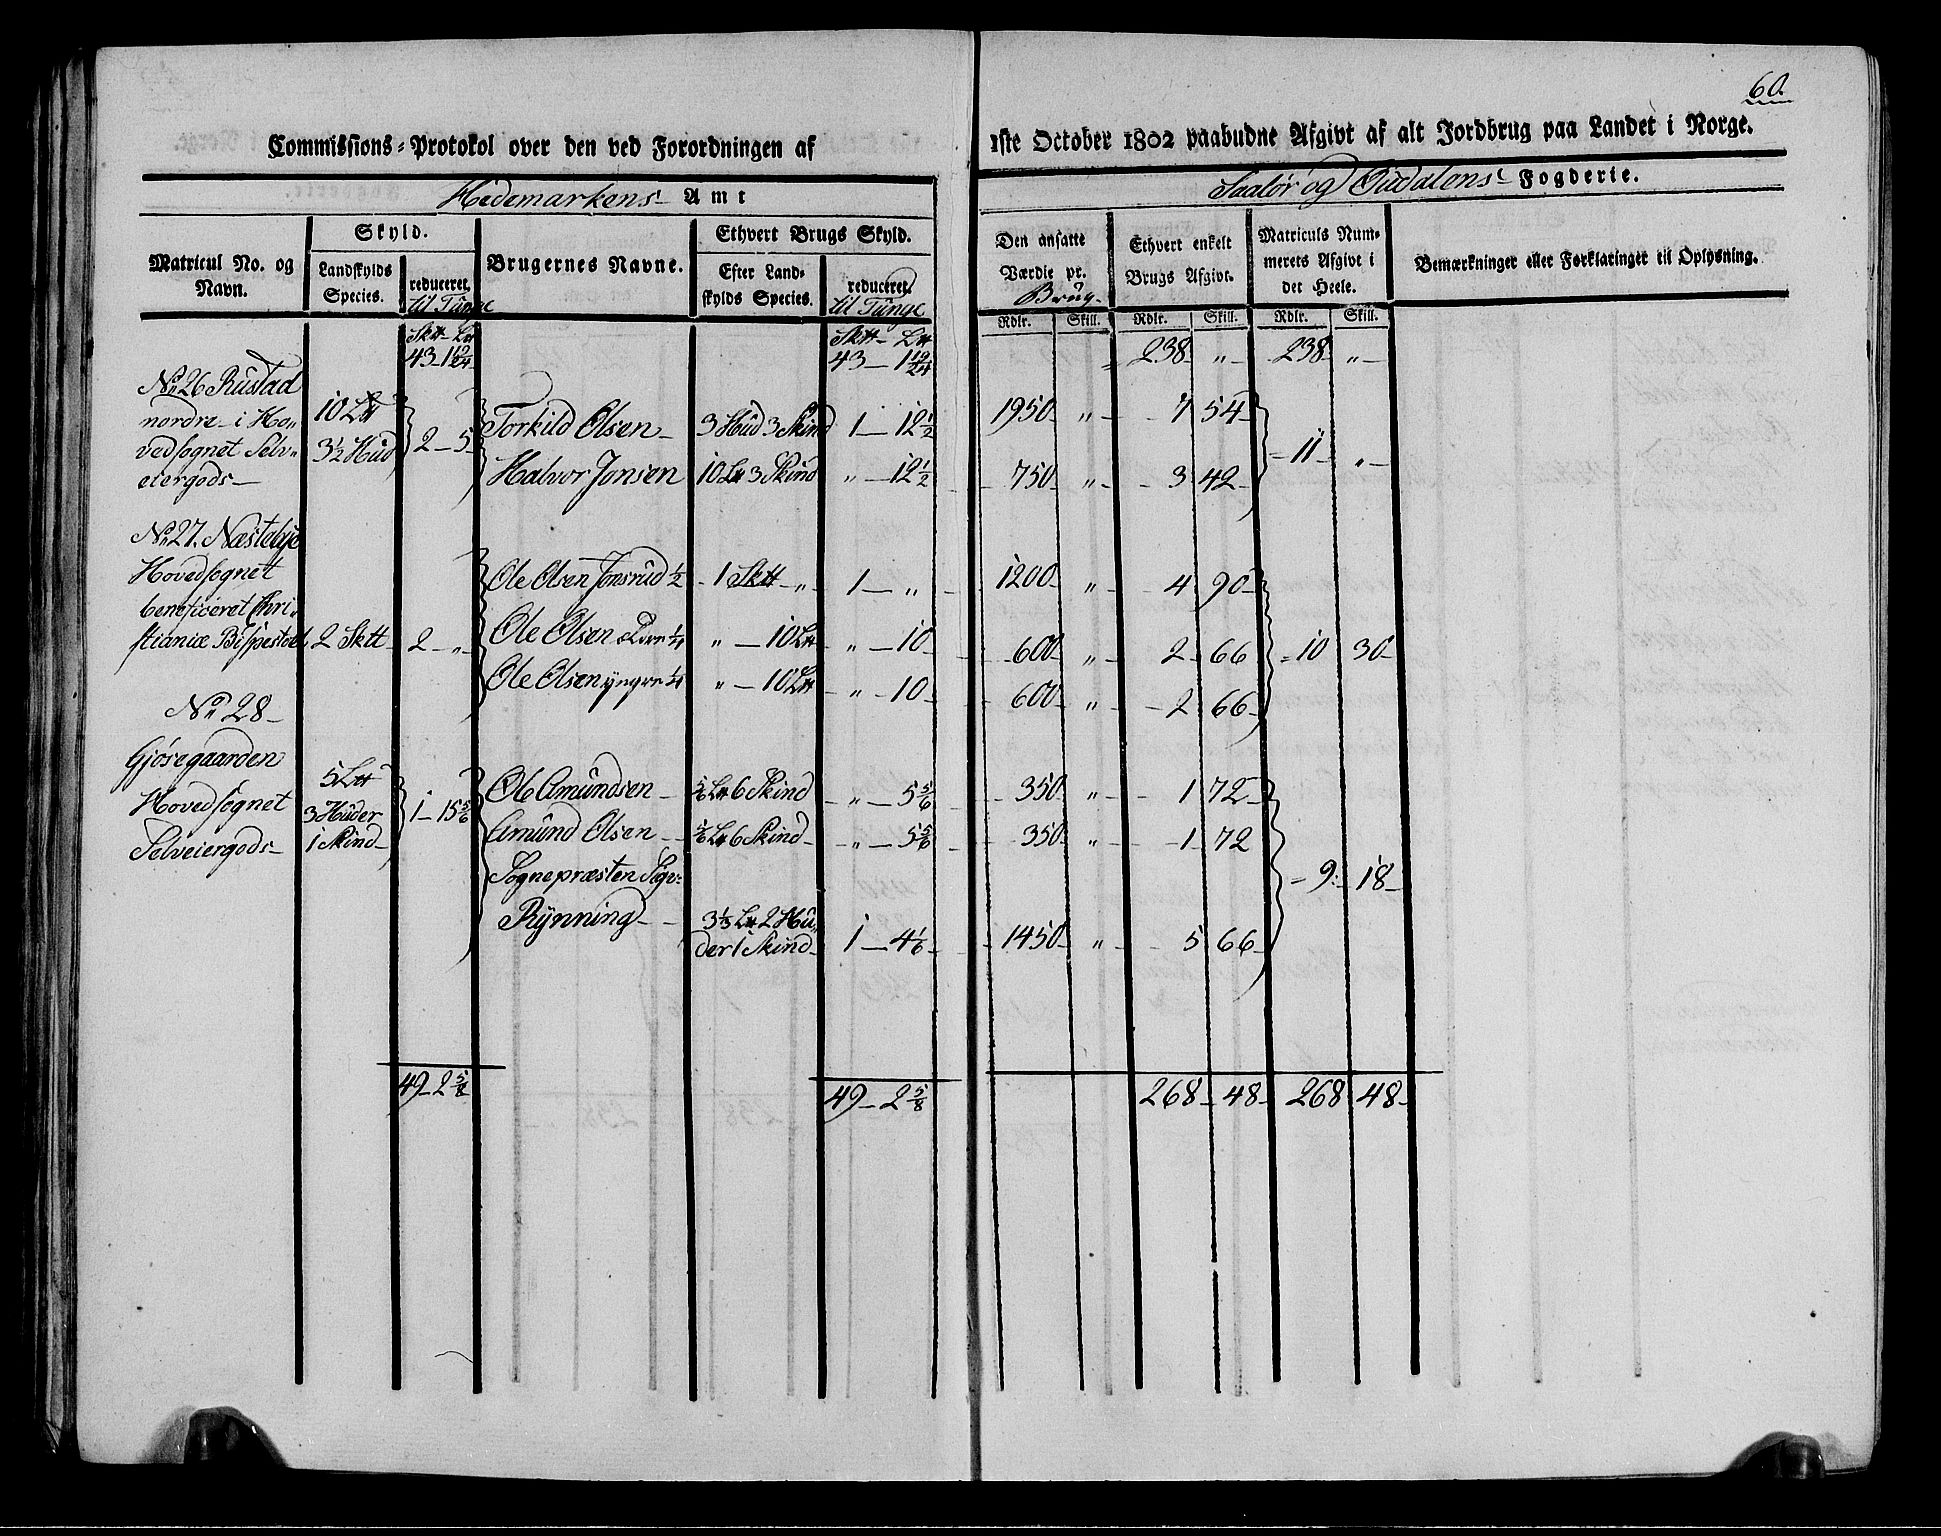 60.
Commissions-Protokol over den ved Forordningen af 1ste October 1802 paabudne Afgivt af alt Jordbrug paa Landet i Norge.
Hedemarkens Amt
Soelør og Oudalens Fogderie.
Matricul No. og Navn.
Skyld.
Landskylds Species.
reduceret til Tunge
Brugernes Navne.
Ethvert Brugs Skyld.
Efter Landskylds Species.
reduceret til Tunge
Den ansatte Værdie pr. Brug.
Ethvert enkelt Brugs Afgivt.
Matriculs Nummerets Afgivt i det Heele.
Bemærkninger eller Forklaringer til Oplysning.
Rdlr. Skill. Rdlr. Skill. Rdlr. Skill.
Sktt - Ltt Sktt - Ltt
43 - 1 19/24 43 - 1 19/24 = 238 - „ - 238 - „ -
No. 26 Rustad
nordre - i Ho-
vedsognet Selv-
eiergods -
10 Ltt
3½ Hud
2 - 5 -
Torkild Olsen - 3 Hud 3 Skind 1 - 12½ 1950 - „ - 7 54 -
Halvor Jonsen 10 Ltt 3 Skind „ - 12½ - 750 - „ - 3 42 -
= 11 - „ -
No. 27. Næstebye
Hovedsognet
beneficeret Chri-
stianiæ Bispestoel
2 Sktt - 2 - „ -
Ole Olsen Jonsrud ½ - 1 Sktt - „ 1 - „ - 1200 - „ - 4 90 -
Ole Olsen Eldre ¼ „ - 10 Ltt „ - 10 - 600 - „ - 2 66
Ole Olsen yngre ¼ „ - 10 Ltt „ - 10 - 600 - „ - 2 66 -
= 10 30 -
No. 28 -
Gjøsegaarden
Hovedsognet
Selveiergods -
5 Ltt
3 Huder
1 Skind -
1 - 15 5/6
Ole Amundsen - 5/6 Ltt 6 Skind - „ - 5 5/6 - 350 - „ - 1 72 -
Amund Olsen - 5/6 Ltt 6 Skind - - „ - 5 5/6 - 350 - „ - 1 72
Sognepræsten Sgr:
Rynning - 3⅓ Ltt 2 Hu-
der 1 Skind - 1 - 4 1/6 - 1450 - „ - 5 66 -
= 9: 18 -
49 - 2 5/8 49 - 2 5/8 268 - 48 - 268 48 -